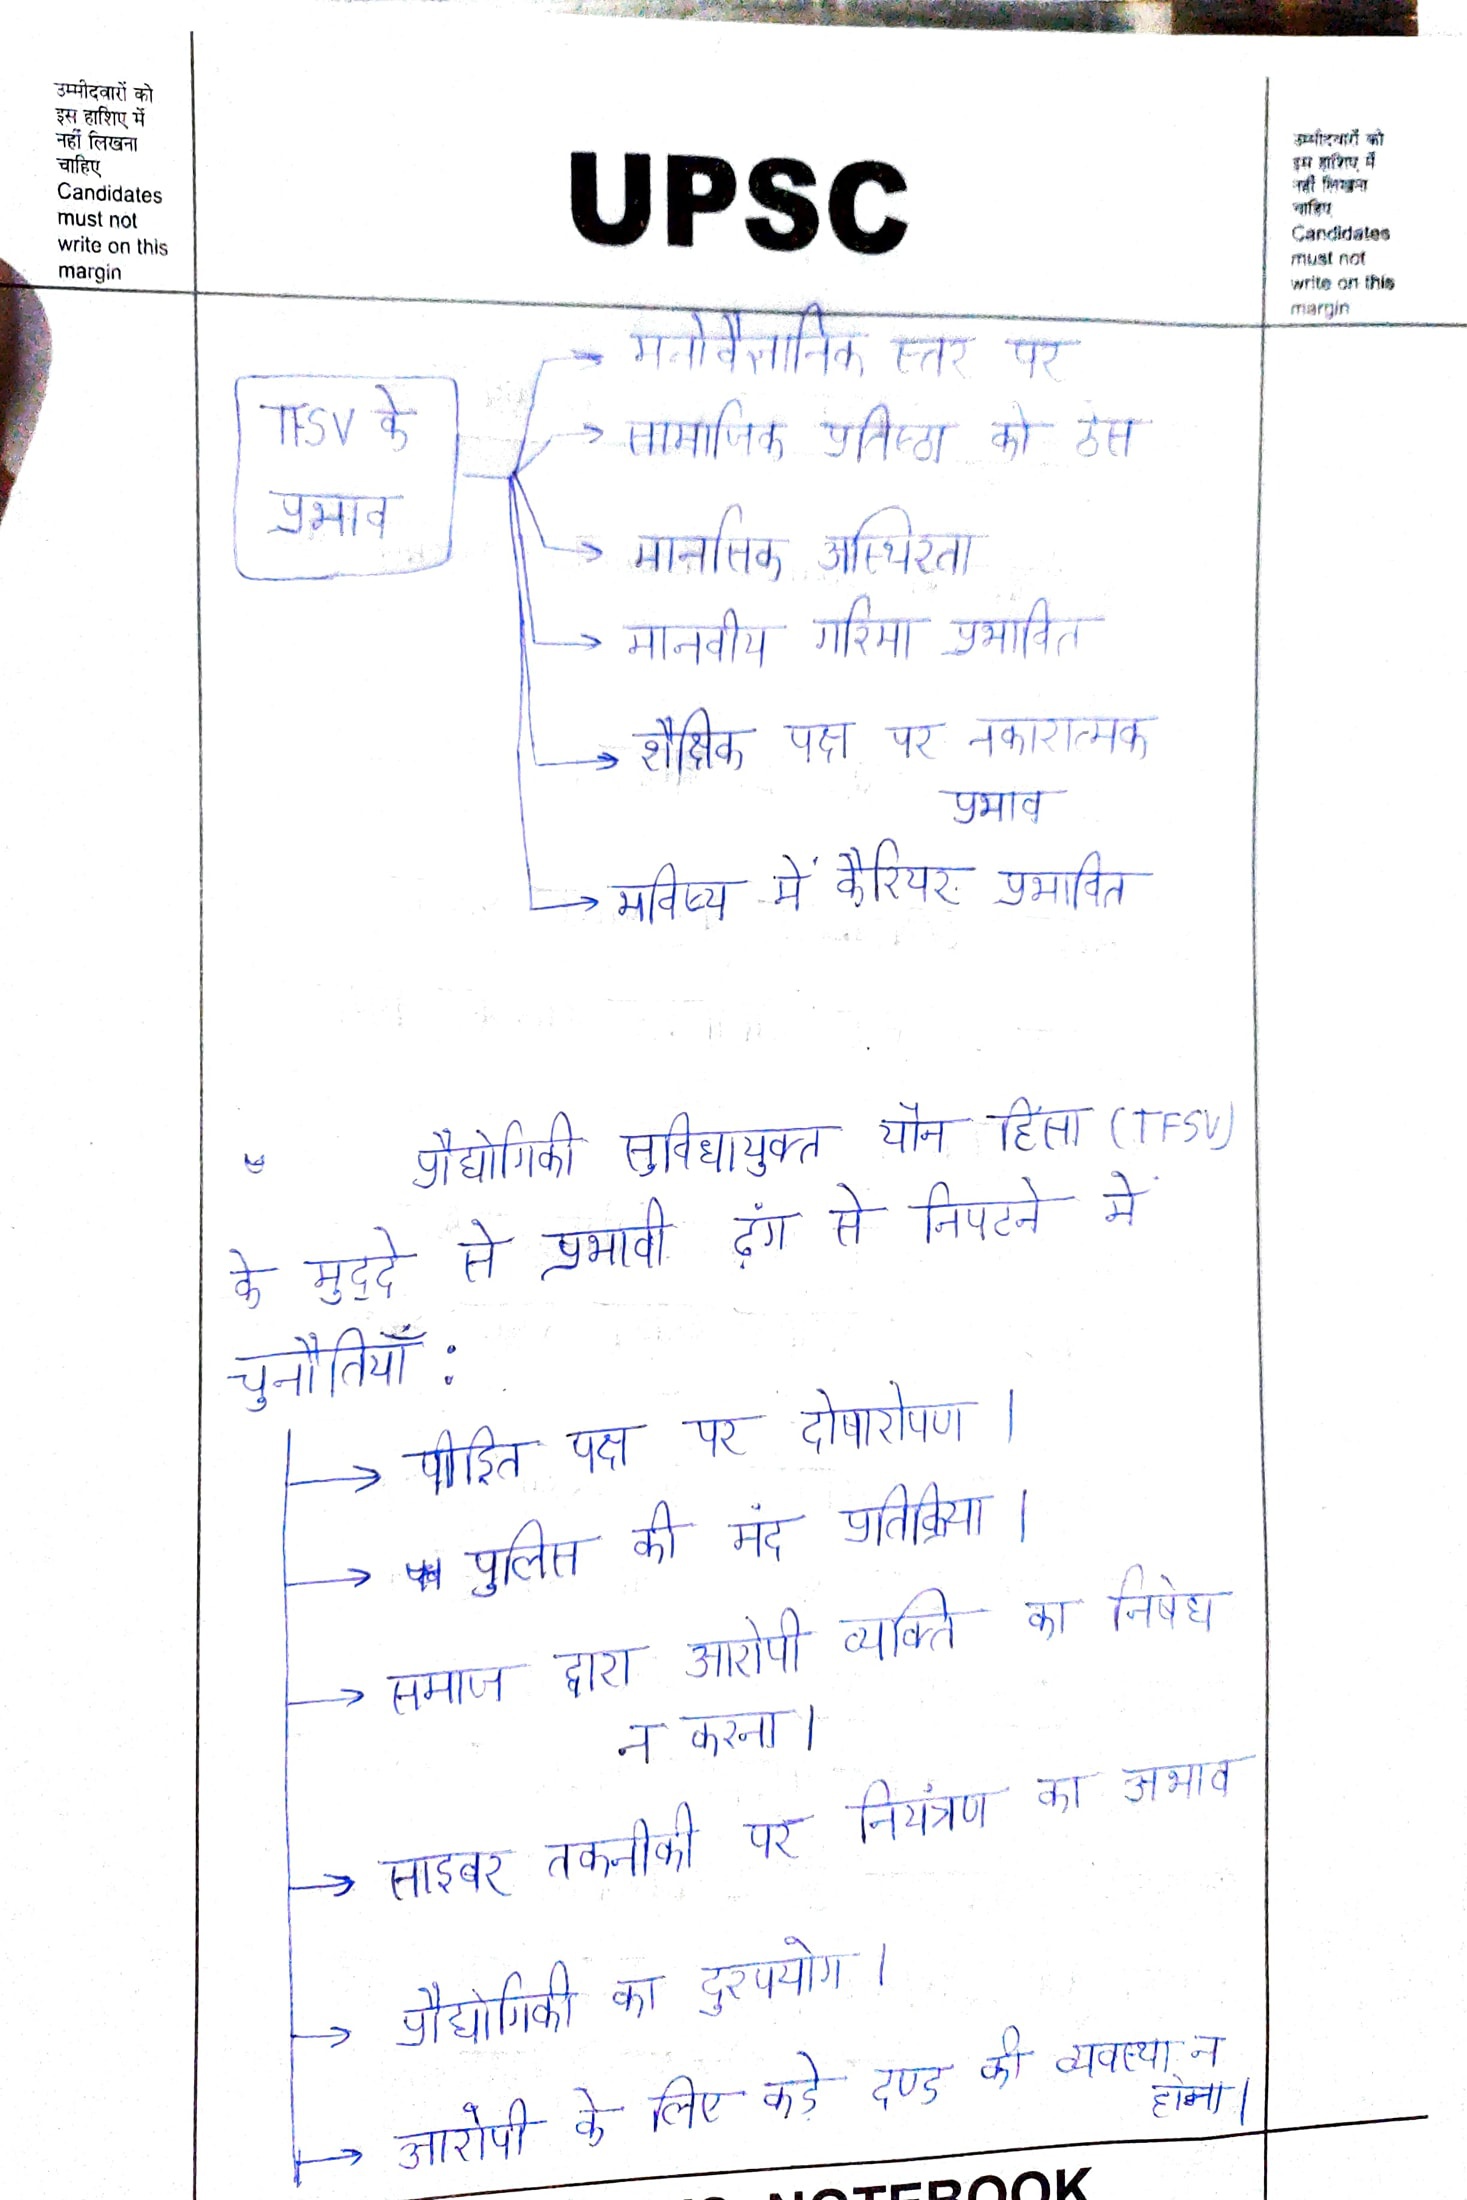 उम्मीदवारों को
इस हाशिए में
नहीं लिखना
चाहिए
Candidates
must not
write on this
margin
UPSC
उम्मीदवारों को
इस हाशिए में
नहीं लिखना
चाहिए
Candidates
must not
write on this
margin
TFSV के
प्रभाव
मनोवैज्ञानिक स्तर पर
सामाजिक प्रतिष्ठा को ठेस
मानसिक अस्थिरता
मानवीय गरिमा प्रभावित
शैक्षिक पक्ष पर नकारात्मक
प्रभाव
भविष्य में कैरियर प्रभावित
प्रौद्योगिकी सुविधायुक्त यौन हिंसा (TFSV)
के मुद्दे से प्रभावी ढ़ंग से निपटने में
चुनौतियाँ :
पीड़ित पक्ष पर दोषारोपण ।
पुलिस की मंद प्रतिक्रिया ।
समाज द्वारा आरोपी व्यक्ति का निषेध
न करना ।
साइबर तकनीकी पर नियंत्रण का अभाव
प्रौद्योगिकी का दुरपयोग ।
आरोपी के लिए कड़े दण्ड की व्यवस्था न
होना ।
NOTEBOOK